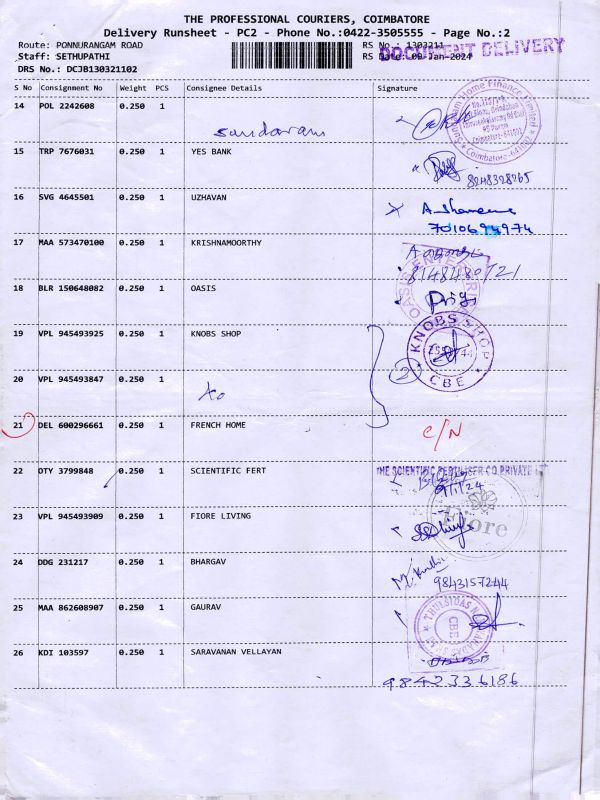 THE PROFESSIONAL COURIERS, COIMBATORE
Delivery Runsheet - PC2 - Phone No.:0422-3505555 - Page No.:2
Route: PONNURANGAM ROAD RS No.: 1303211
Staff: SETHUPATHI RS Date: 09-Jan-2024
DOCUMENT DELIVERY
DRS No.: DCJB130321102
S No Consignment No Weight PCS Consignee Details Signature
14 POL 2242608 0.250 1
Sundaram
15 TRP 7676031 0.250 1 YES BANK
8248328265
16 SVG 4645501 0.250 1 UZHAVAN
7010694974
17 MAA 573470100 0.250 1 KRISHNAMOORTHY
18 BLR 150648082 0.250 1 OASIS
19 VPL 945493925 0.250 1 KNOBS SHOP
KNOBS SHOP
CBE
2
20 VPL 945493847 0.250 1
21 DEL 600296661 0.250 1 FRENCH HOME
C/N
22 OTY 3799848 0.250 1 SCIENTIFIC FERT
THE SCIENTIFIC FERTILISER CO.PRIVATE LT
9/1/24
23 VPL 945493909 0.250 1 FIORE LIVING
Fiore
24 DDG 231217 0.250 1 BHARGAV
9843157244
25 MAA 862608907 0.250 1 GAURAV
CBE
26 KDI 103597 0.250 1 SARAVANAN VELLAYAN
9842336186